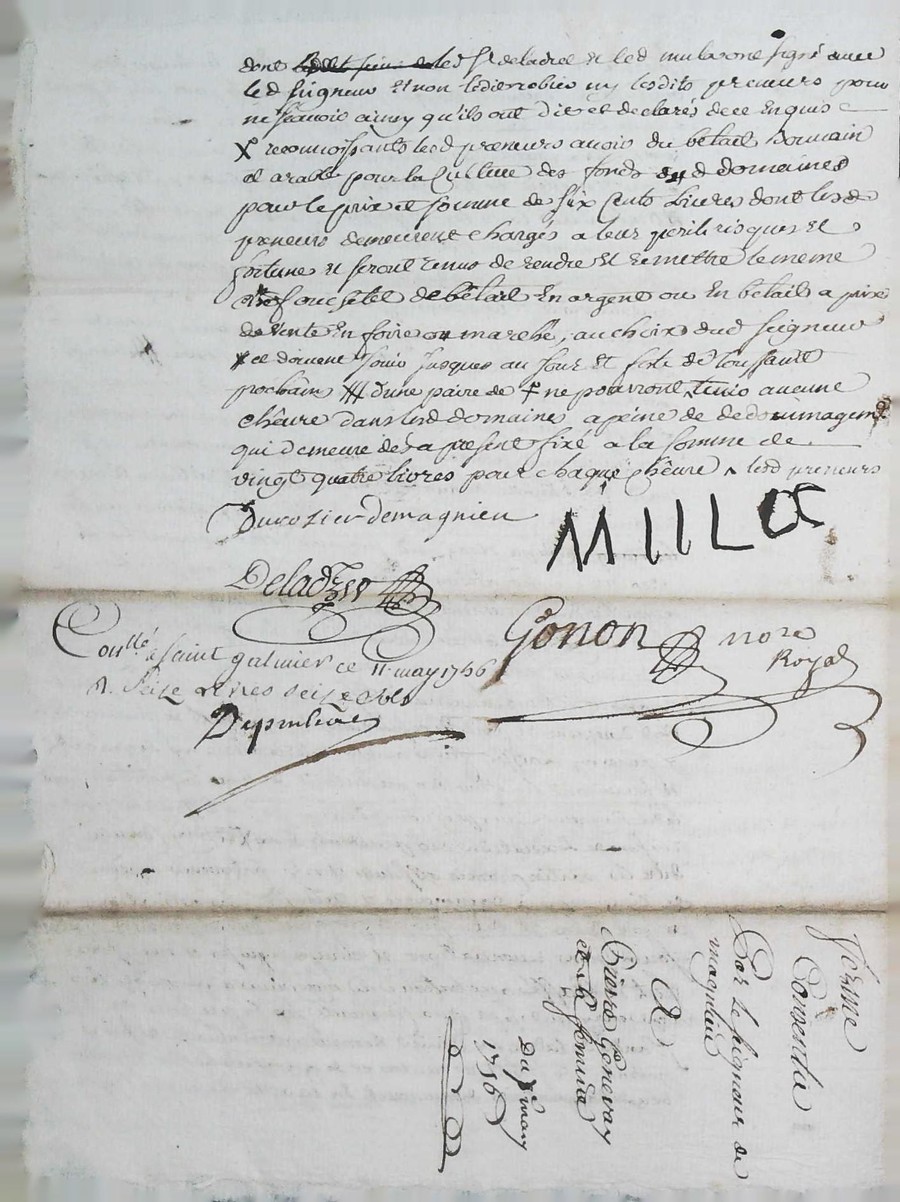 dont led Sr deladret et led mularone signé avec
led seigneur et non ny lesdits preneurs pour
ne scavoir ainsy qu'ils ont dit et declarés de ce Enquis
X reconnoissants lesd preneurs avoir du bétail
et pour la Culture des fonds dud domaines
pour le prix et somme de Six Cents Livres dont lesd
preneurs demeurent chargés a leur peril risques et
fortunes et seront tenus de rendre et remettre le meme
de bétail En argent ou En bétail a prix
de vente En foire ou marché, au choix dud seigneur
et doivent jouir jusques au jour et fete de toussaint
prochain d'une paire de ne pourront tenir aucune
chêvre dans led domaine a peine de dedommagemt
qui demeure dès a present fixé a la somme de
vingt quatre livres pour chaque chêvre lesd preneurs
Durosier demagnieu
MIILOC
Deladret
Gonon nore
Royal
Conllé a saint galmier ce 11 may 1756
R. seize livres seize sols
ferme
Consentie
Par le seigneur de
magnieu
A
Pierre Genevay
et sa femme
Du may
1756